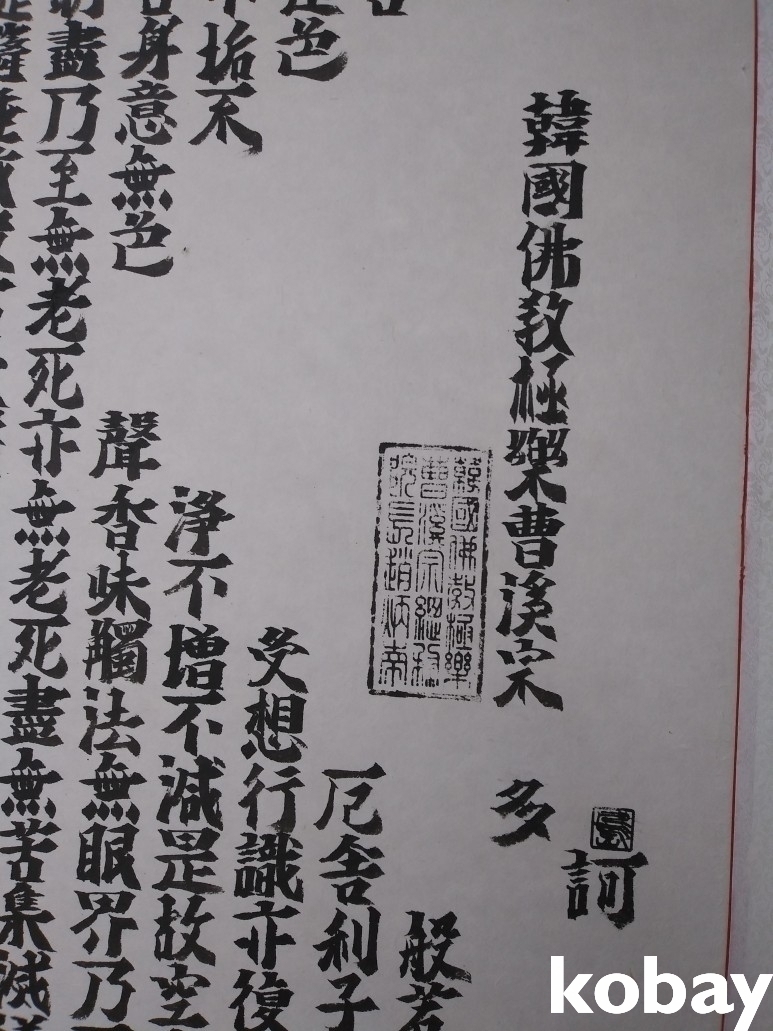 訶
韓國佛教極樂曹溪宗 多
韓國佛教極樂
曹溪宗總務
院長趙炳
般若
厄舍利子
色 受想行識亦復
垢不 淨不增不減是故空
身意無色 聲香味觸法無眼界乃
盡乃至無老死亦無老死盡無苦集滅
kobay